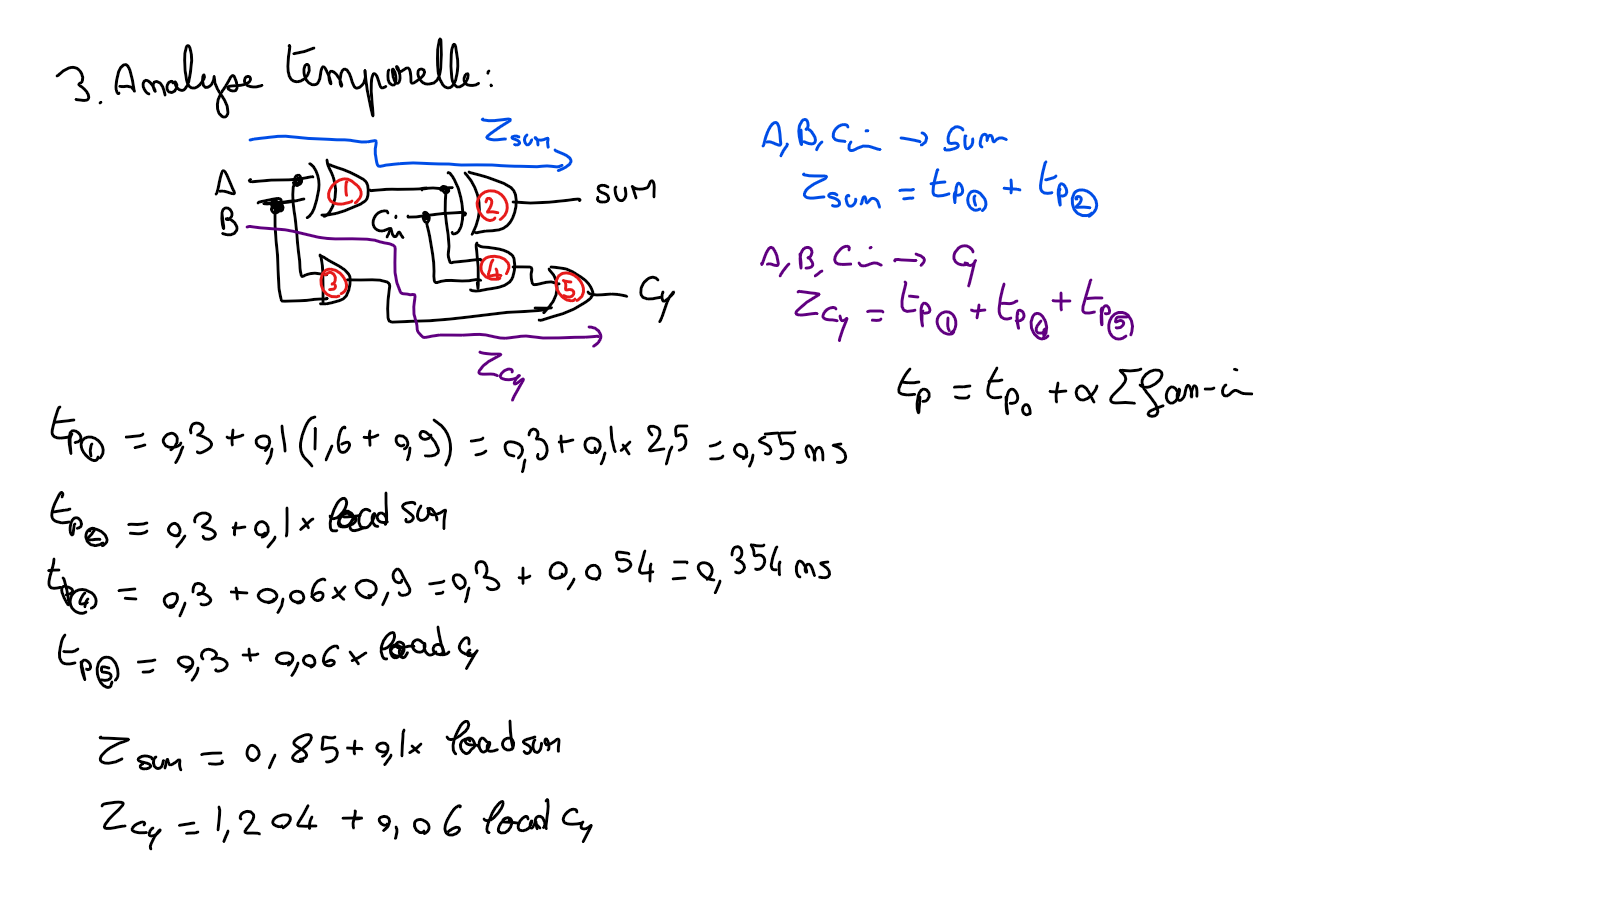 3. Analyse temporelle:
Zsum
A, B, Cin → sum
A
1
2
SUM
Zsum = tp① + tp②
B
Cin
3
4
5
Cy
A, B, Cin → Cy
Zcy = tp① + tp④ + tp⑤
Zcy
tp = tp₀ + α Σ fan-in
tp① = 0,3 + 0,1 (1,6 + 0,9) = 0,3 + 0,1 x 2,5 = 0,55 ns
tp② = 0,3 + 0,1 x load sum
tp④ = 0,3 + 0,06 x 0,9 = 0,3 + 0,054 = 0,354 ns
tp⑤ = 0,3 + 0,06 x load cy
Zsum = 0,85 + 0,1 x load sum
Zcy = 1,204 + 0,06 load cy